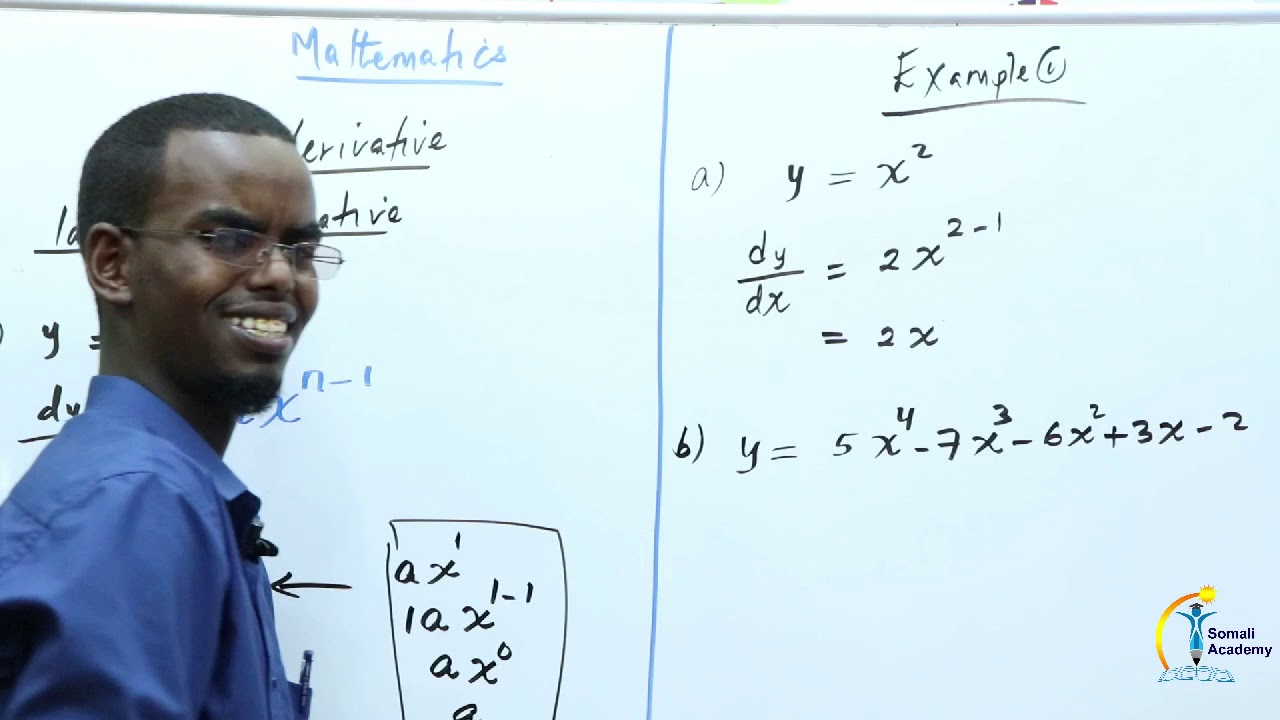 Mathematics
derivative
y =
dy
x^{n-1}
ax^1
1ax^{1-1}
ax^0
a
Example ①
a) y = x^2
dy/dx = 2x^{2-1}
= 2x
b) y = 5x^4 - 7x^3 - 6x^2 + 3x - 2
Somali
Academy